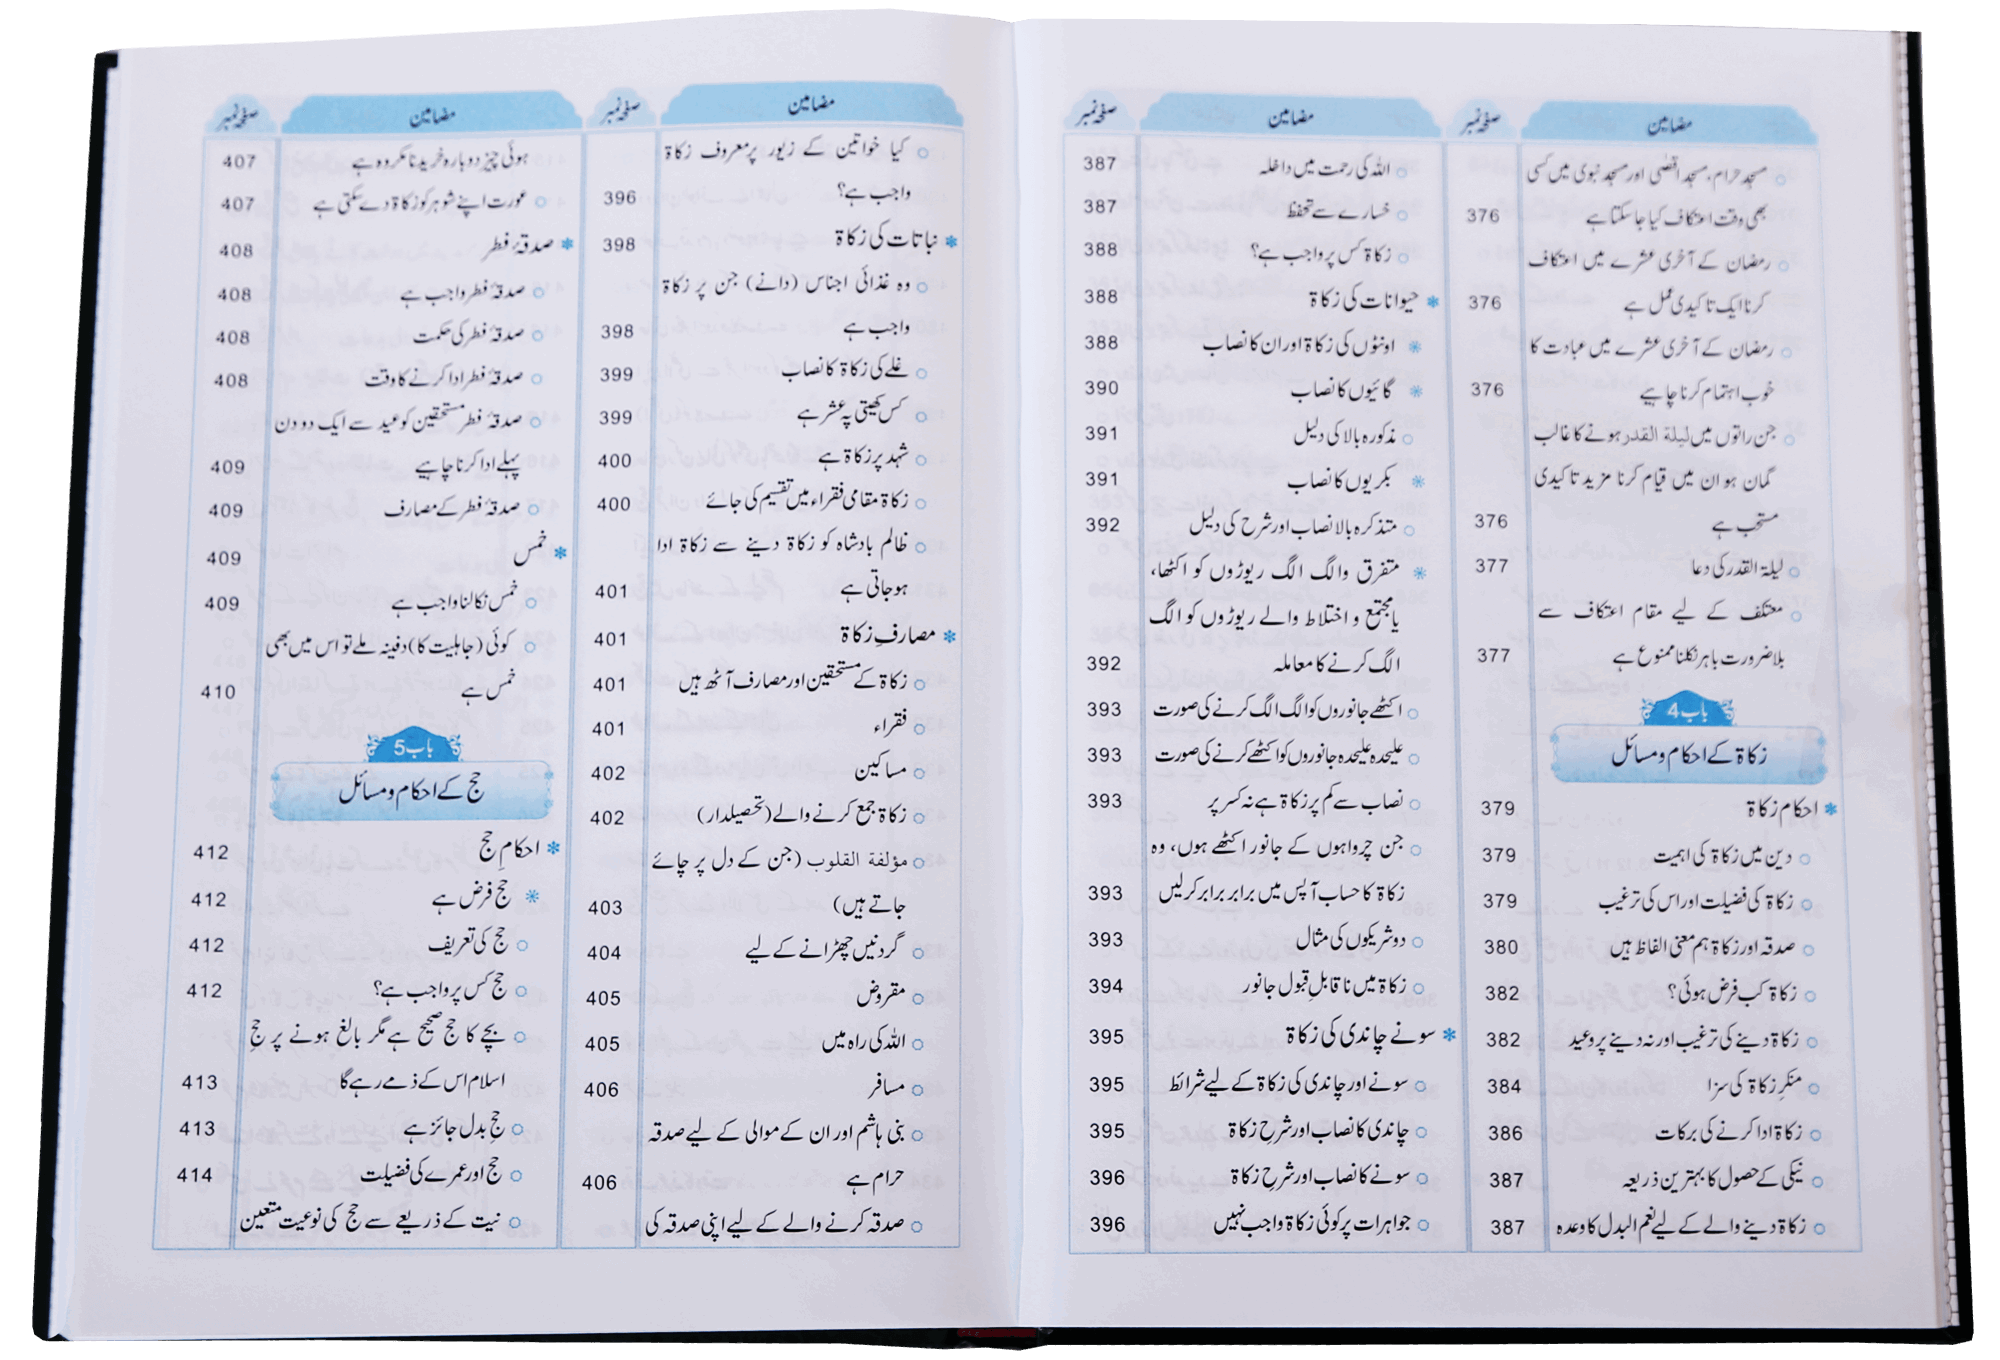 مضامین صفحہ نمبر
مسجد حرام، مسجد اقصٰی اور مسجد نبوی میں کسی
بھی وقت اعتکاف کیا جاسکتا ہے 376
رمضان کے آخری عشرے میں اعتکاف
کرنا ایک تاکیدی عمل ہے 376
رمضان کے آخری عشرے میں عبادت کا
خوب اہتمام کرنا چاہیے 376
جن راتوں میں لیلة القدر ہونے کا غالب
گمان ہو ان میں قیام کرنا مزید تاکیدی
مستحب ہے 376
لیلۃ القدر کی دعا 377
معتکف کے لیے مقام اعتکاف سے
بلا ضرورت باہر نکلنا ممنوع ہے 377
باب 4
زکاۃ کے احکام و مسائل
احکام زکاۃ 379
دین میں زکاۃ کی اہمیت 379
زکاۃ کی فضیلت اور اس کی ترغیب 379
صدقہ اور زکاۃ ہم معنی الفاظ ہیں 380
زکاۃ کب فرض ہوئی؟ 382
زکاۃ دینے کی ترغیب اور نہ دینے پر وعید 382
منکرِ زکاۃ کی سزا 384
زکاۃ ادا کرنے کی برکات 386
نیکی کے حصول کا بہترین ذریعہ 387
زکاۃ دینے والے کے لیے نعم البدل کا وعدہ 387
مضامین صفحہ نمبر
اللہ کی رحمت میں داخلہ 387
خسارے سے تحفظ 387
زکاۃ کس پر واجب ہے؟ 388
حیوانات کی زکاۃ 388
اونٹوں کی زکاۃ اور ان کا نصاب 388
گائیوں کا نصاب 390
مذکورہ بالا کی دلیل 391
بکریوں کا نصاب 391
متذکرہ بالا نصاب اور شرح کی دلیل 392
متفرق و الگ الگ ریوڑوں کو اکٹھا،
یا مجتمع و اختلاط والے ریوڑوں کو الگ
الگ کرنے کا معاملہ 392
اکٹھے جانوروں کو الگ الگ کرنے کی صورت 393
علیحدہ علیحدہ جانوروں کو اکٹھے کرنے کی صورت 393
نصاب سے کم پر زکاۃ ہے نہ کسر پر 393
جن چرواہوں کے جانور اکٹھے ہوں، وہ
زکاۃ کا حساب آپس میں برابر برابر کرلیں 393
دو شریکوں کی مثال 393
زکاۃ میں نا قابلِ قبول جانور 394
سونے چاندی کی زکاۃ 395
سونے اور چاندی کی زکاۃ کے لیے شرائط 395
چاندی کا نصاب اور شرح زکاۃ 395
سونے کا نصاب اور شرح زکاۃ 396
جواہرات پر کوئی زکاۃ واجب نہیں 396
مضامین صفحہ نمبر
کیا خواتین کے زیور پر معروف زکاۃ
واجب ہے؟ 396
نباتات کی زکاۃ 398
وہ غذائی اجناس (دانے) جن پر زکاۃ
واجب ہے 398
غلے کی زکاۃ کا نصاب 399
کس کھیتی پہ عشر ہے 399
شہد پر زکاۃ ہے 400
زکاۃ مقامی فقراء میں تقسیم کی جائے 400
ظالم بادشاہ کو زکاۃ دینے سے زکاۃ ادا
ہو جاتی ہے 401
مصارفِ زکاۃ 401
زکاۃ کے مستحقین اور مصارف آٹھ ہیں 401
فقراء 401
مساکین 402
زکاۃ جمع کرنے والے (تحصیلدار) 402
مؤلفة القلوب (جن کے دل پر چائے
جاتے ہیں) 403
گردنیں چھڑانے کے لیے 404
مقروض 405
اللہ کی راہ میں 405
مسافر 406
بنی ہاشم اور ان کے موالی کے لیے صدقہ
حرام ہے 406
صدقہ کرنے والے کے لیے اپنی صدقہ کی
مضامین صفحہ نمبر
ہوئی چیز دوبارہ خریدنا مکروہ ہے 407
عورت اپنے شوہر کو زکاۃ دے سکتی ہے 407
صدقۂ فطر 408
صدقۂ فطر واجب ہے 408
صدقۂ فطر کی حکمت 408
صدقۂ فطر ادا کرنے کا وقت 408
صدقۂ فطر مستحقین کو عید سے ایک دو دن
پہلے ادا کرنا چاہیے 409
صدقۂ فطر کے مصارف 409
خمس 409
خمس نکالنا واجب ہے 409
کوئی (جاہلیت کا) دفینہ ملے تو اس میں بھی
خمس ہے 410
باب 5
حج کے احکام و مسائل
احکامِ حج 412
حج فرض ہے 412
حج کی تعریف 412
حج کس پر واجب ہے؟ 412
بچے کا حج صحیح ہے مگر بالغ ہونے پر حجِ
اسلام اس کے ذمے رہے گا 413
حجِ بدل جائز ہے 413
حج اور عمرے کی فضیلت 414
نیت کے ذریعے سے حج کی نوعیت متعین